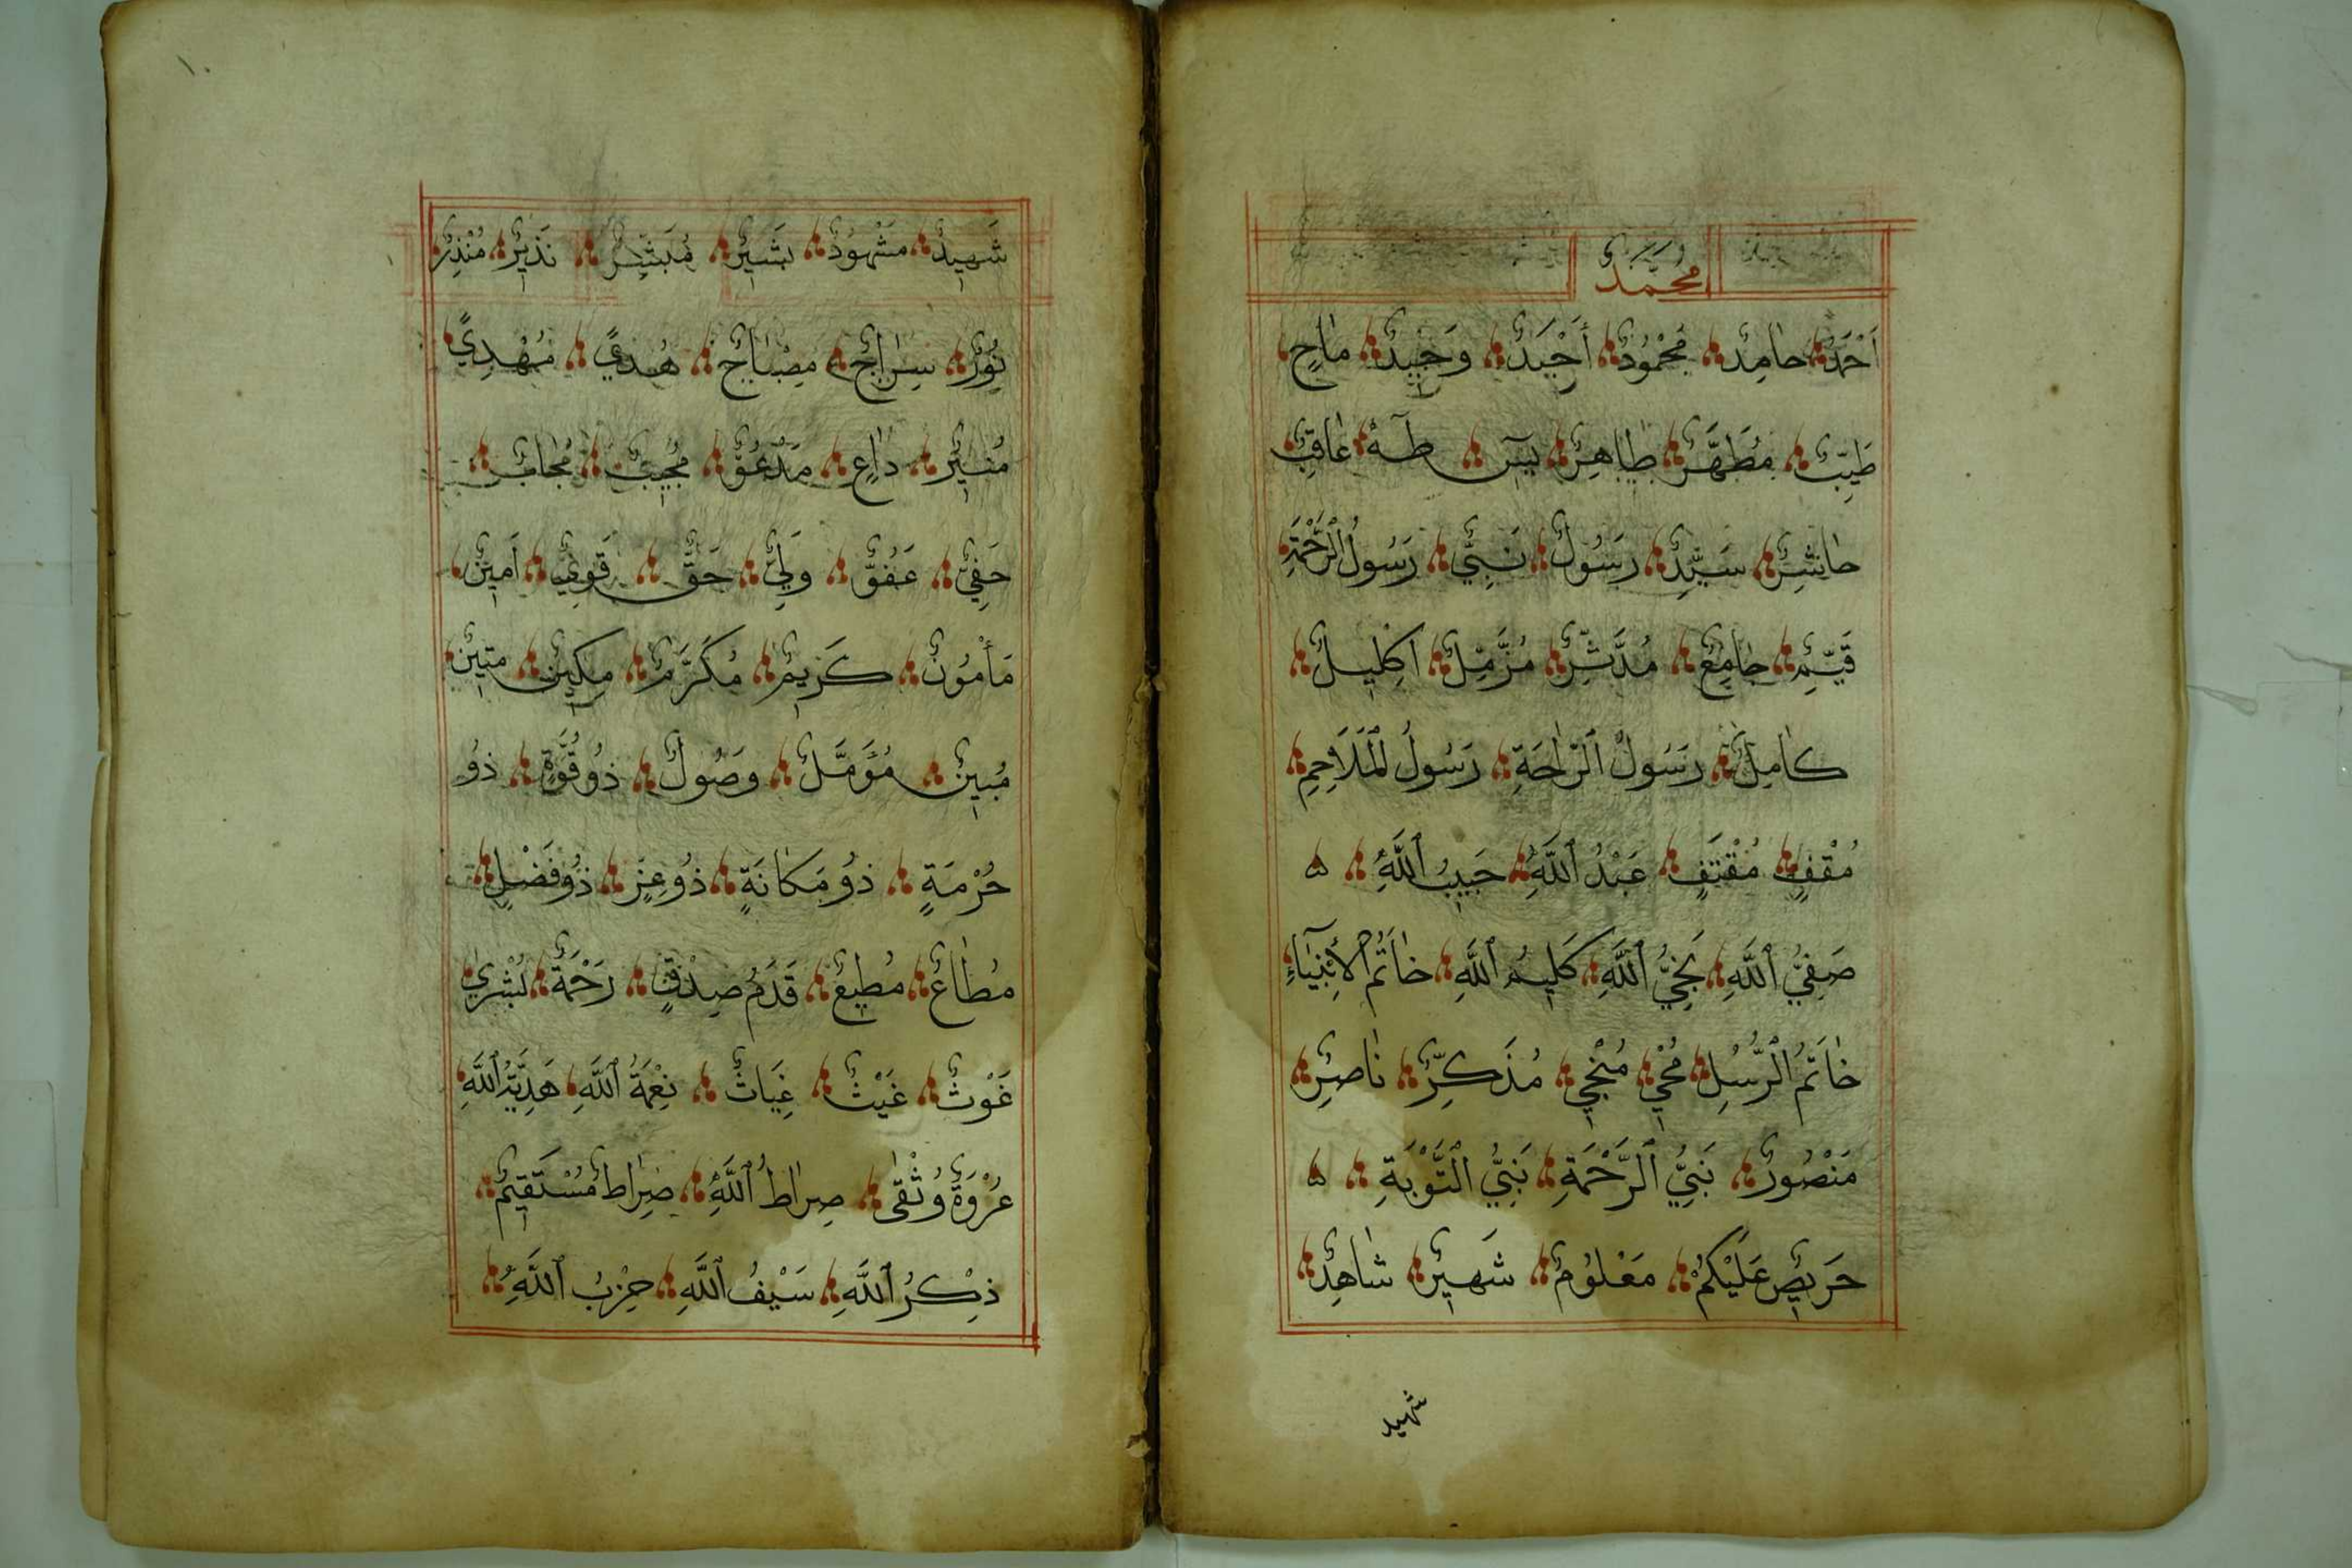 مُحَمَّدٌ
أَحْمَدٌ حَامِدٌ مَحْمُودٌ أَحْيَدٌ وَحِيدٌ مَاحٍ
طَيِّبٌ مُطَهَّرٌ طَاهِرٌ يٰسٓ طٰهٰ عَاقِبٌ
حَاشِرٌ سَيِّدٌ رَسُولٌ نَبِيٌّ رَسُولُ الرَّحْمَةِ
قَيِّمٌ جَامِعٌ مُدَّثِّرٌ مُزَّمِّلٌ اكْلِيلٌ
كَامِلٌ رَسُولُ الرَّاحَةِ رَسُولُ الْمَلَاحِمِ
مُقْفٍ مُقْتَفٍ عَبْدُ اللَّهِ حَبِيبُ اللَّهِ ۵
صَفِيُّ اللَّهِ نَجِيُّ اللَّهِ كَلِيمُ اللَّهِ خَاتَمُ الْأَنْبِيَاءِ
خَاتَمُ الرُّسُلِ مُحْيٍ مُنْجٍي مُذَكِّرٌ نَاصِرٌ
مَنْصُورٌ نَبِيُّ الرَّحْمَةِ نَبِيُّ التَّوْبَةِ ۵
حَرِيصٌ عَلَيْكُمْ مَعْلُومٌ شَهِيرٌ شَاهِدٌ
شهيد
شَهِيدٌ مَشْهُودٌ بَشِيرٌ مُبَشِّرٌ نَذِيرٌ مُنْذِرٌ
نُورٌ سِرَاجٌ مِصْبَاحٌ هُدًى مُهْدِيٌ
مُنِيرٌ دَاعٍ مَدْعُوٌّ مُجِيبٌ مُجَابٌ
حَفِيٌّ عَفُوٌّ وَلِيٌّ حَقٌّ قَوِيٌّ أَمِينٌ
مَأْمُونٌ كَرِيمٌ مُكَرَّمٌ مَكِينٌ مَتِينٌ
مُبِينٌ مُؤَمَّلٌ وَصُولٌ ذُو قُوَّةٍ ذُو
حُرْمَةٍ ذُو مَكَانَةٍ ذُو عِزٍّ ذُو فَضْلٍ
مُطَاعٌ مُطِيعٌ قَدَمُ صِدْقٍ رَحْمَةٌ بُشْرٰى
غَوْثٌ غَيْثٌ غِيَاثٌ نِعْمَةُ اللَّهِ هَدِيَّةُ اللَّهِ
عُرْوَةٌ وُثْقٰى صِرَاطُ اللَّهِ صِرَاطٌ مُسْتَقِيمٌ
ذِكْرُ اللَّهِ سَيْفُ اللَّهِ حِزْبُ اللَّهِ